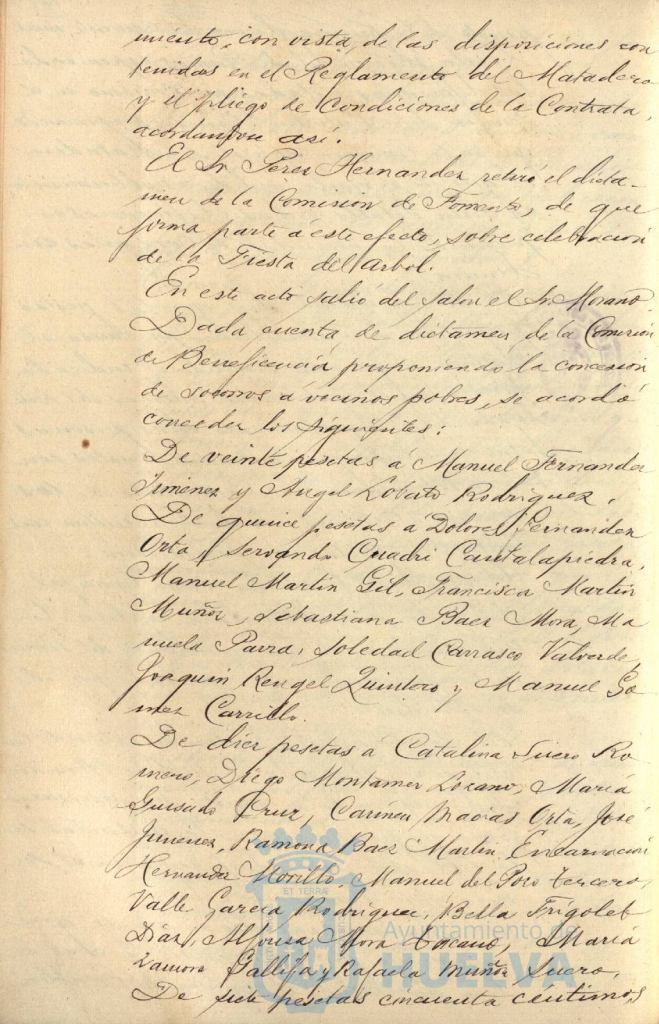 miento, con vista, de las disposiciones con
tenidas en el Reglamento del Matadero
y el pliego de Condiciones de la Contrata,
acordandose así.
El Sr. Perez Hernandez retiró el dicta-
men de la Comision de Fomento, de que
forma parte á este efecto, sobre celebracion
de la Fiesta del Arbol.
En este acto salió del salon el Sr. Morano.
Dada cuenta de dictamen de la Comision
de Beneficencia proponiendo la concesion
de socorros á vecinos pobres, se acordó
conceder los siguientes:
De veinte pesetas á Manuel Fernandez
Jimenez y Angel Lobato Rodriguez.
De quince pesetas á Dolores Fernandez
Orta, Servando Quadri Cantalapiedra,
Manuel Martin Gil, Francisca Martin
Muñoz, Sebastiana Baez Mora, Ma
nuela Parra, Soledad Carrasco Valverde,
Joaquin Rengel Quintero y Manuel Go
mez Carrillo.
De diez pesetas á Catalina Suero Ro
mero, Diego Montaner Lozano, Maria
Quesada Cruz, Carmen Macias Orta, José
Jimenez, Ramona Baez Martin, Encarnacion
Hernandez Morillo, Manuel del Pozo Tercero,
Valle Garcia Rodriguez, Bella Frigolet
Diaz, Alfonsa Mora, Maria
Zamora Gallifa y Rafaela Muñoz Suero.
De siete pesetas cincuenta centimos,
ET TERRAE
Ayuntamiento de
HUELVA